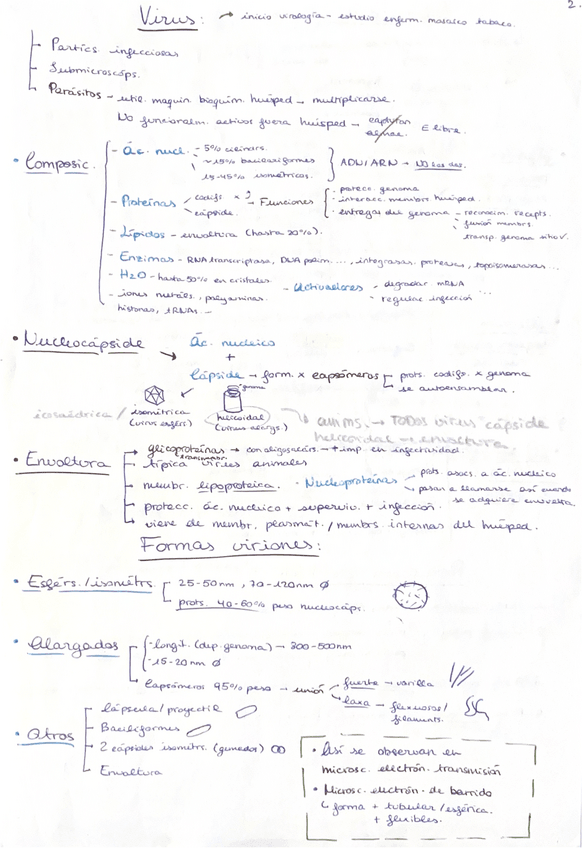 2.
Virus: → inicio virología - estudio enferm. mosaico tabaco.
Partícs infecciosas
Submicroscóps.
Parásitos - utiliz. maquin. bioquím. huésped → multiplicarse.
No funcionalm. activos fuera huésped → E libre.
• Composic.
- Ác. nucl. - 5% helicoids.
~15% baciliformes
15-45% isométricos.
ADN/ARN → NO los dos.
- Proteínas
codifs x
cápside.
→ Funciones
· protecc. genoma
· interacc. membr huésped.
· entrega del genoma - reconocim. recepts.
fusión membrs.
transp. genoma
- Lípidos - envoltura (hasta 20%).
- Enzimas - RNA transcriptasa, DNA polim...., integrasas, proteasas, topoisomerasas...
- H2O - hasta 50% en cristales.
- iones metáls, poliaminas,
histonas, tRNAs -
- Activadores
- degradar mRNA
- regular infección
...
• Nucleocápside →
Ác. nucleico
+
Cápside → form. x capsómeros
prots. codifs. x genoma
se autoensamblan.
icosaédrica /
isométrica
(virus esférs.)
genoma
helicoidal
(virus alargs.)
→ anims. → TODOS virus cápside
helicoidal → envoltura.
• Envoltura
glicoproteínas → con oligosacárs. → + imp. en infectividad.
transmembr.
típica virus animales
membr. lipoproteica.
• Nucleoproteínas
prots. asocs. a ác. nucleico
pasan a llamarse así cuando
se adquiere envoltura.
protecc. ác. nucleico + superviv. + infección.
viene de membr. plasmát. / membrs. internas del huésped.
Formas viriones:
• Esférs./isométrs.
25-50nm, 70-120nm Ø
prots. 40-60% peso nucleocáps.
• Alargados
- longit. (dep. genoma) → 300-500nm
- 15-20nm Ø
Capsómeros 95% peso → unión
fuerte → varilla
laxa → flexuosos/
filaments.
• Otros
Cápsula/proyectil
Baciliformes
2 cápsides isométrs. (gemelos)
Envoltura
• Así se observan en
microsc. electrón. transmisión
• Microsc. electrón. de barrido
↳ forma + tubular/esférica.
+ flexibles.